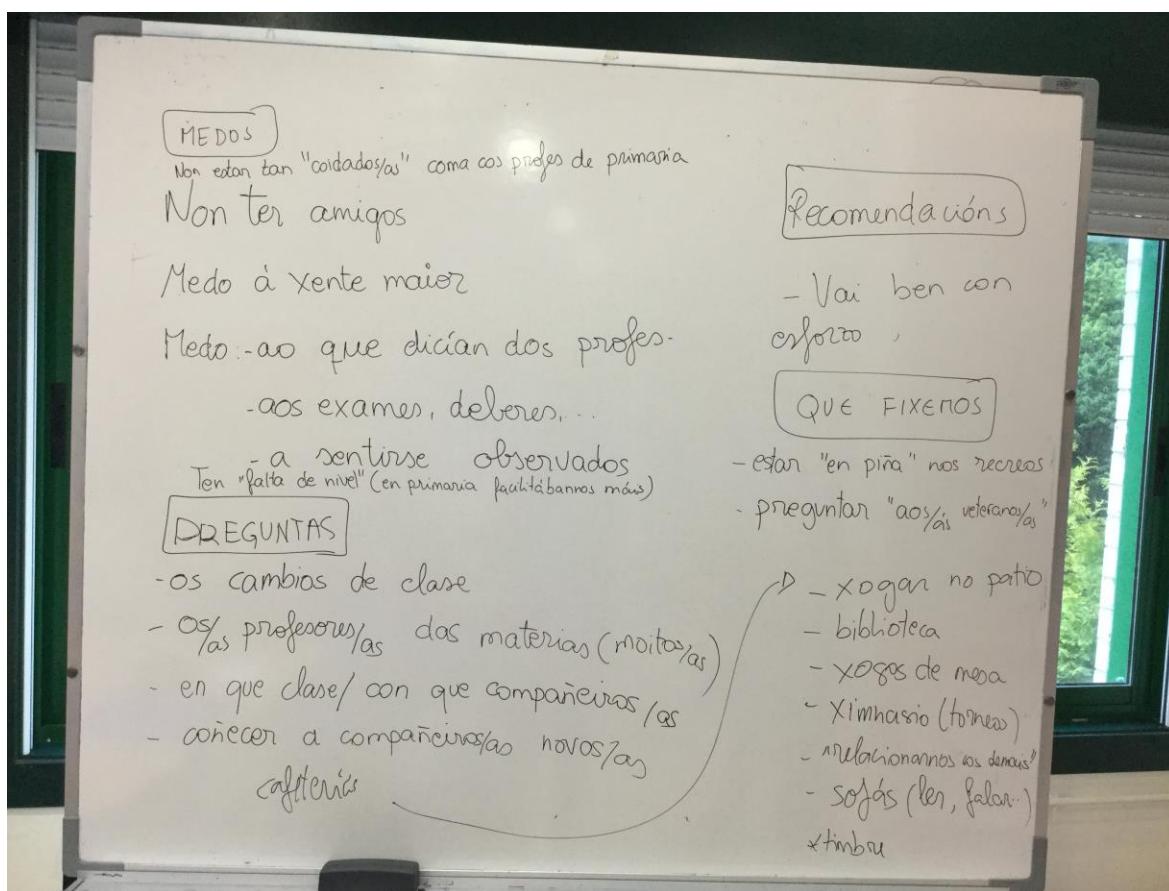 MEDOS
Non estan tan "coidados/as" coma cos profes de primaria
Non ter amigos
Medo à xente maior
Medo:-ao que dicían dos profes.
-aos exames, deberes,...
-a sentirse observados
Ten "falta de nivel" (en primaria facilitábannos máis)
PREGUNTAS
-os cambios de clase
- os/as profesores/as das materias (moitos/as)
- en que clase/ con que compañeiros/as
- coñecer a compañeiros/as novos/as
cafetería
Recomendacións
- Vai ben con
esforzo
QUE FIXEMOS
- estar "en piña" nos recreos
- preguntar "aos/ás veteranos/as"
- xogar no patio
- biblioteca
- xogos de mesa
- Ximnasio (torneo)
- "relacionarnos cos demais"
- sofás (ler, falar..)
*timbre